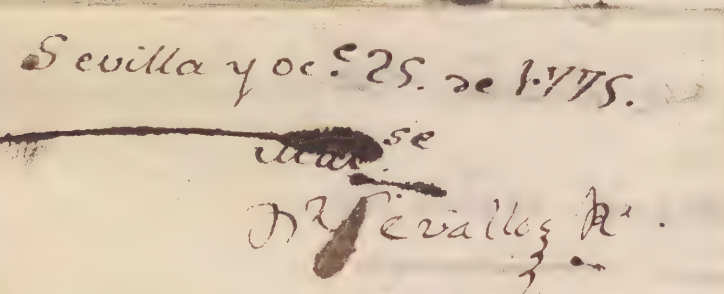 Sevilla y oc.e 25. de 1.775.
se
Dr Cevallos Rr.